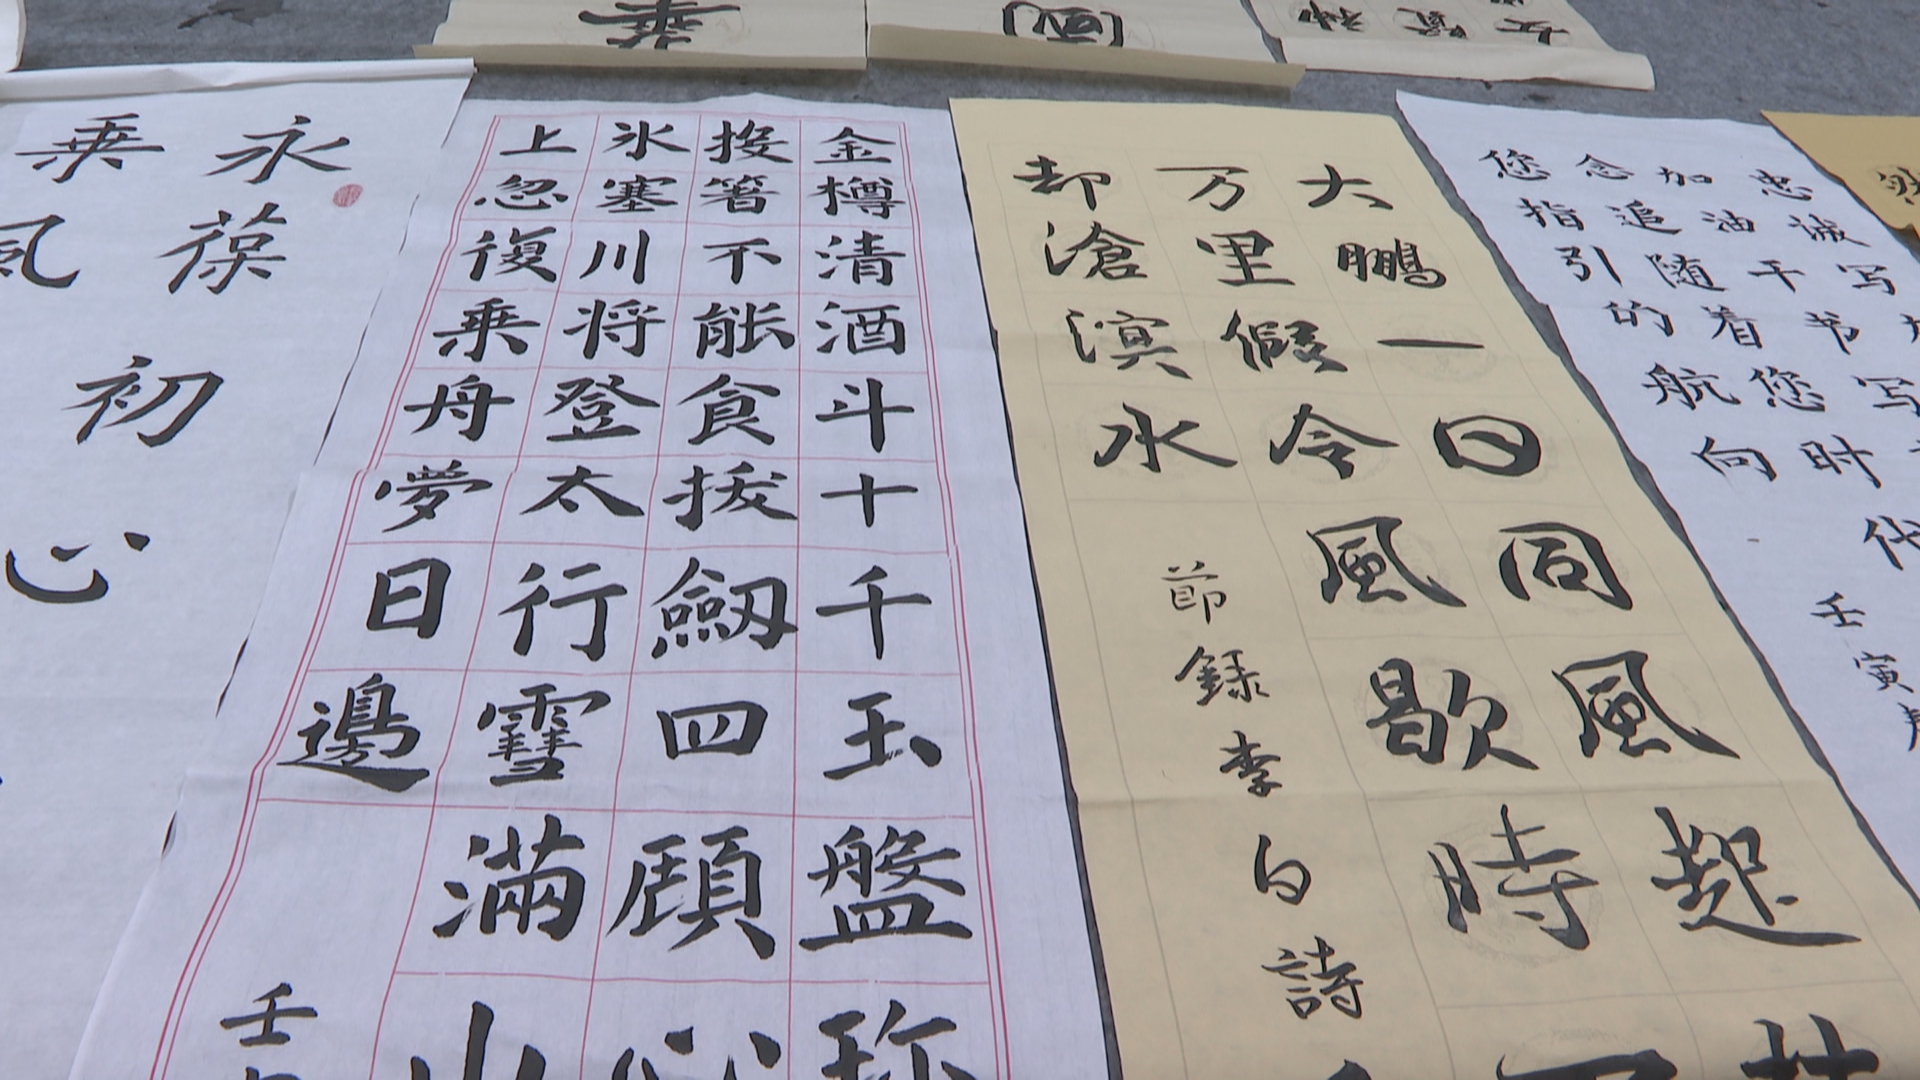 永葆初心
乘風
金樽清酒斗十千玉盤珍
投箸不能食拔劍四顧心
氷塞川将登太行雪滿山
上忽復乘舟夢日邊
壬
大鵬一日同風起扶
万里假令風歇時下
却滄溟水
節録李白詩
忠诚写
加油干书写
念追随着您时代
您指引的航向
壬寅